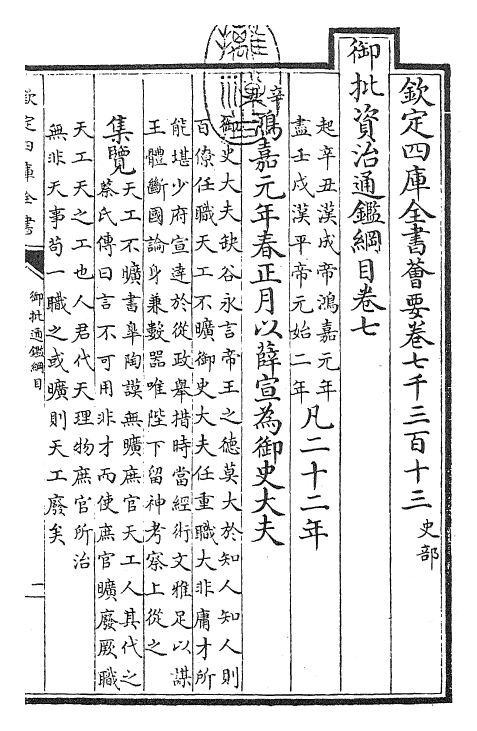 欽定四庫全書薈要卷七千三百十三 史部
御批資治通鑑綱目卷七
起辛丑漢成帝鴻嘉元年
盡壬戌漢平帝元始二年
凡二十二年
辛丑
鴻嘉元年春正月以薛宣為御史大夫
御史大夫缺谷永言帝王之徳莫大於知人知人則
百僚任職天工不曠御史大夫任重職大非庸才所
能堪少府宣達於從政舉措時當經術文雅足以謀
王體斷國論身兼數器唯陛下留神考察上從之
集覽
天工不曠書皋陶謨無曠庶官天工人其代之
蔡氏傳曰言不可用非才而使庶官曠廢厥職
天工天之工也人君代天理物庶官所治
無非天事苟一職之或曠則天工廢矣
欽定四庫全書
御批通鑑綱目